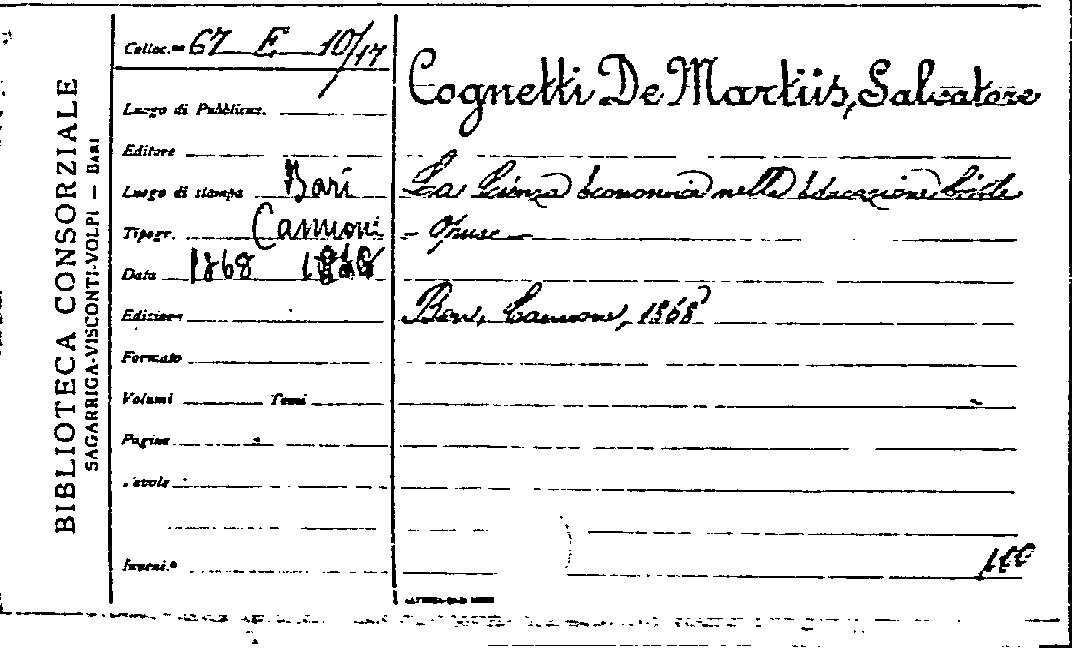 BIBLIOTECA CONSORZIALE
SAGARRIGA-VISCONTI-VOLPI — BARI
Colloc.ne 67 E 10/17
Luogo di Pubblicaz.
Editore
Luogo di stampa Bari
Tipogr. Cannoni
Data 1868
Edizione
Formato
Volumi Tomi
Pagine
Tavole
Invent.e
Cognetti De Martiis, Salvatore
La Scienza economica nella educazione civile
- Opusc -
Bari, Cannone, 1868